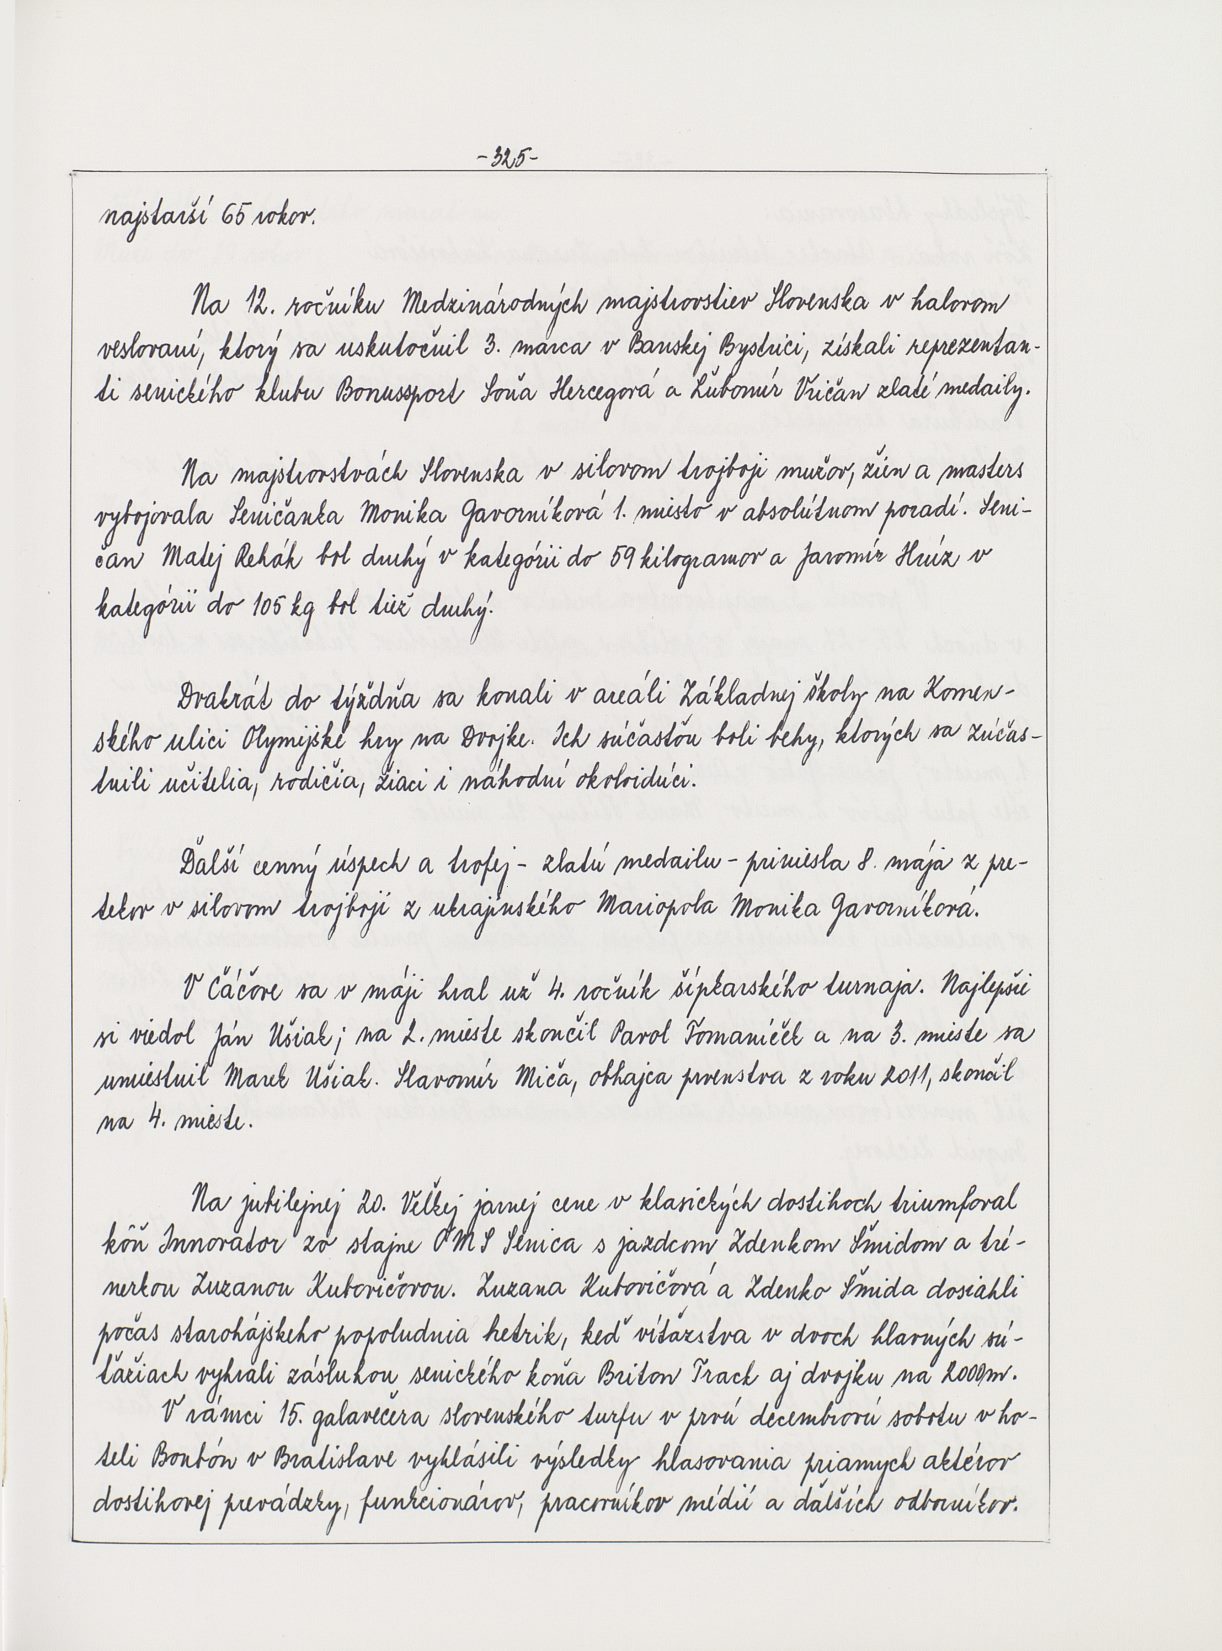 -325-
najstarší 65 rokov.
Na 12. ročníku Medzinárodných majstrovstiev Slovenska v halovom
veslovaní, ktorý sa uskutočnil 3. marca v Banskej Bystrici, získali reprezentan-
ti senického klubu Bonussport Soňa Hercegová a Ľubomír Vričan zlaté medaily.
Na majstrovstvách Slovenska v silovom trojboji mužov, žien a masters
vybojovala Seničanka Monika Gavorníková 1. miesto v absolútnom poradí. Seni-
čan Matej Rehák bol druhý v kategórii do 59 kilogramov a Jaromír Hríz v
kategórii do 105 kg bol tiež druhý.
Dvakrát do týždňa sa konali v areáli Základnej školy na Komen-
ského ulici Olymijské hry na Dvojke. Ich súčasťou boli behy, ktorých sa zúčas-
tnili učitelia, rodičia, žiaci i náhodní okoloidúci.
Ďalší cenný úspech a trofej - zlatú medailu - priniesla 8. mája z pre-
tekov v silovom trojboji z ukrajinského Mariopola Monika Gavorníková.
V Čáčove sa v máji hral už 4. ročník šípkarského turnaja. Najlepšie
si viedol Ján Ušiak; na 2. mieste skončil Pavol Tomaníčěk a na 3. mieste sa
umiestnil Marek Ušiak. Slavomír Miča, obhajca prvenstva z roku 2011, skončil
na 4. mieste.
Na jubilejnej 20. Veľkej jarnej cene v klasických dostihoch triumfoval
kôň Innovator zo stajne OMS Senica s jazdcom Zdenkom Šmidom a tré-
nerkou Zuzanou Kubovičovou. Zuzana Kubovičová a Zdenko Šmida dosiahli
počas starohájskeho popoludnia hetrik, keď víťazstva v dvoch hlavných sú-
ťažiach vyhrali zásluhou senického koňa Briton Track aj dvojku na 2000m.
V rámci 15. galavečera slovenského turfu v prvú decembrovú sobotu v ho-
teli Bonbón v Bratislave vyhlásili výsledky hlasovania priamych aktérov
dostihovej prevádzky, funkcionárov, pracovníkov médií a ďalších odborníkov.